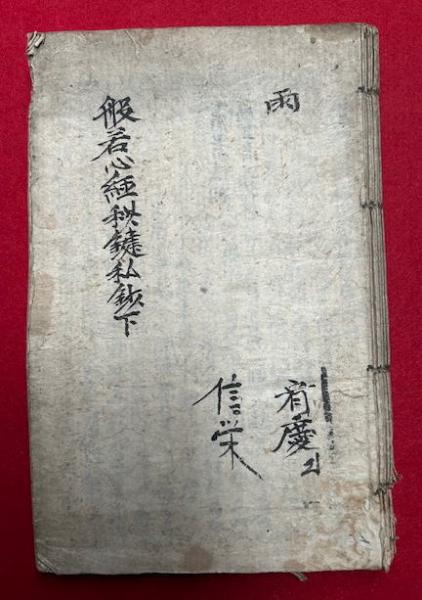 雨
慶
信栄
般若心経秘鍵私鈔下